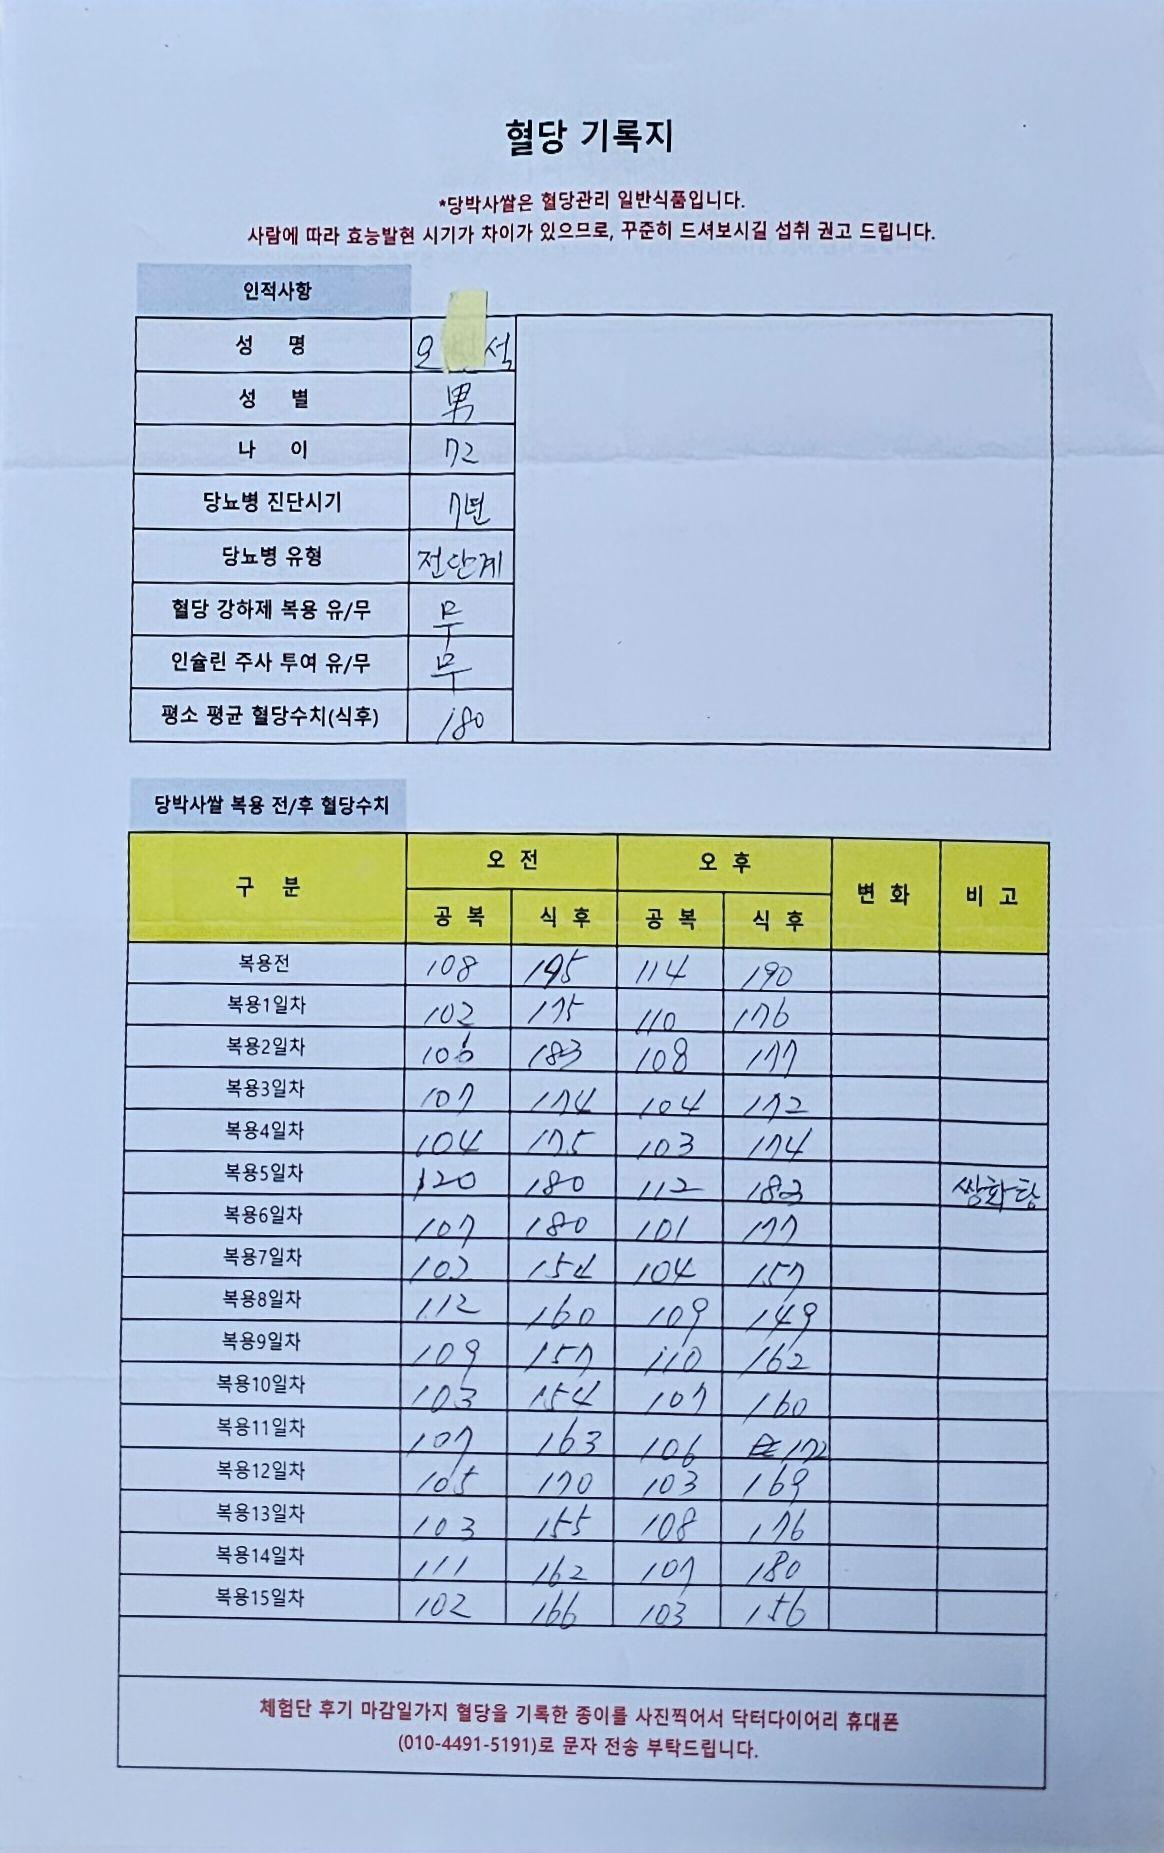 혈당 기록지
*당박사쌀은 혈당관리 일반식품입니다.
사람에 따라 효능발현 시기가 차이가 있으므로, 꾸준히 드셔보시길 섭취 권고 드립니다.
인적사항
성 명 오 석
성 별 男
나 이 72
당뇨병 진단시기 7년
당뇨병 유형 전단계
혈당 강하제 복용 유/무 무
인슐린 주사 투여 유/무 무
평소 평균 혈당수치(식후) 180
당박사쌀 복용 전/후 혈당수치
구 분 오 전 오 후 변 화 비 고
공 복 식 후 공 복 식 후
복용전 108 195 114 190
복용1일차 102 175 110 176
복용2일차 106 183 108 177
복용3일차 107 174 104 172
복용4일차 104 175 103 174
복용5일차 120 180 112 183 쌍화탕
복용6일차 107 180 101 177
복용7일차 102 154 104 157
복용8일차 112 160 109 149
복용9일차 109 157 110 162
복용10일차 103 154 107 160
복용11일차 107 163 106 172
복용12일차 105 170 103 169
복용13일차 103 155 108 176
복용14일차 111 162 107 180
복용15일차 102 166 103 156
체험단 후기 마감일가지 혈당을 기록한 종이를 사진찍어서 닥터다이어리 휴대폰
(010-4491-5191)로 문자 전송 부탁드립니다.